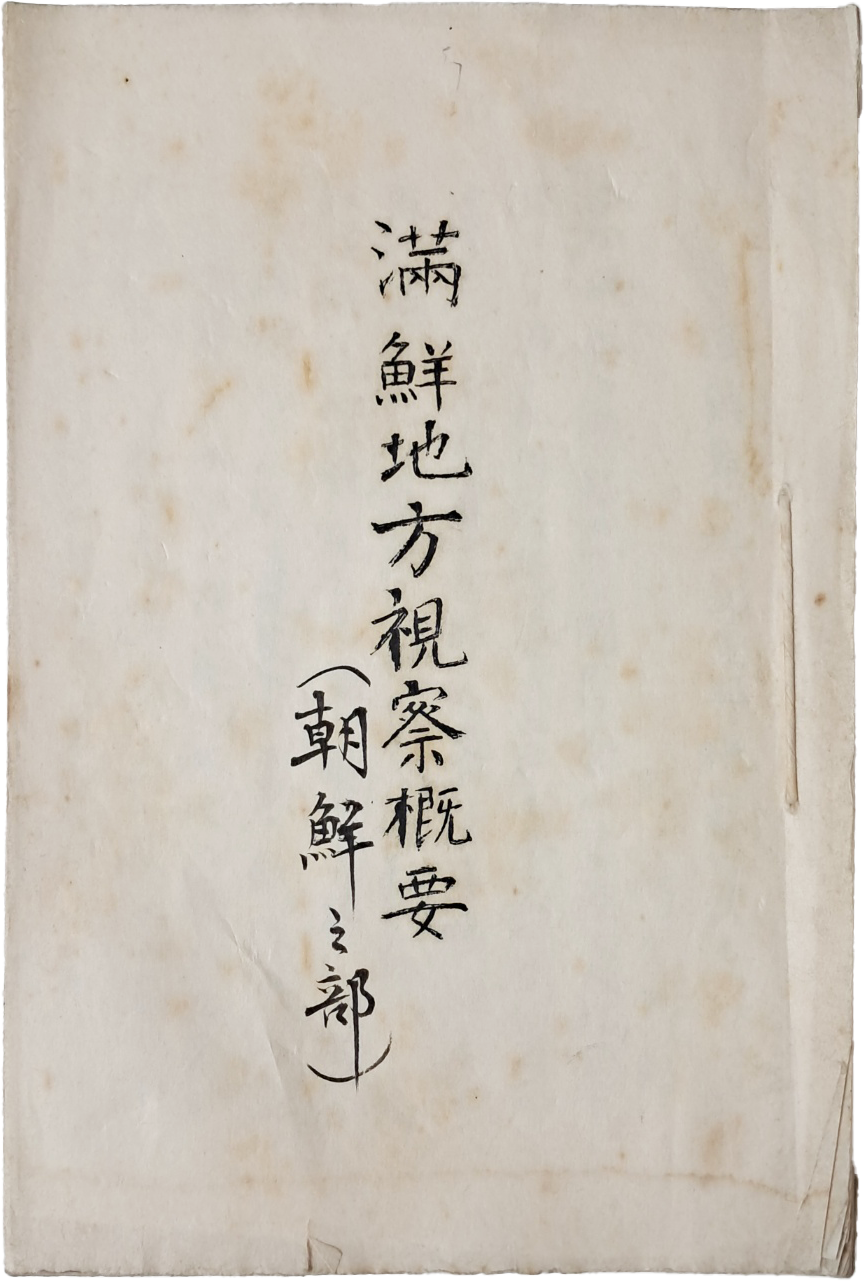 滿鮮地方視察概要
（朝鮮之部）